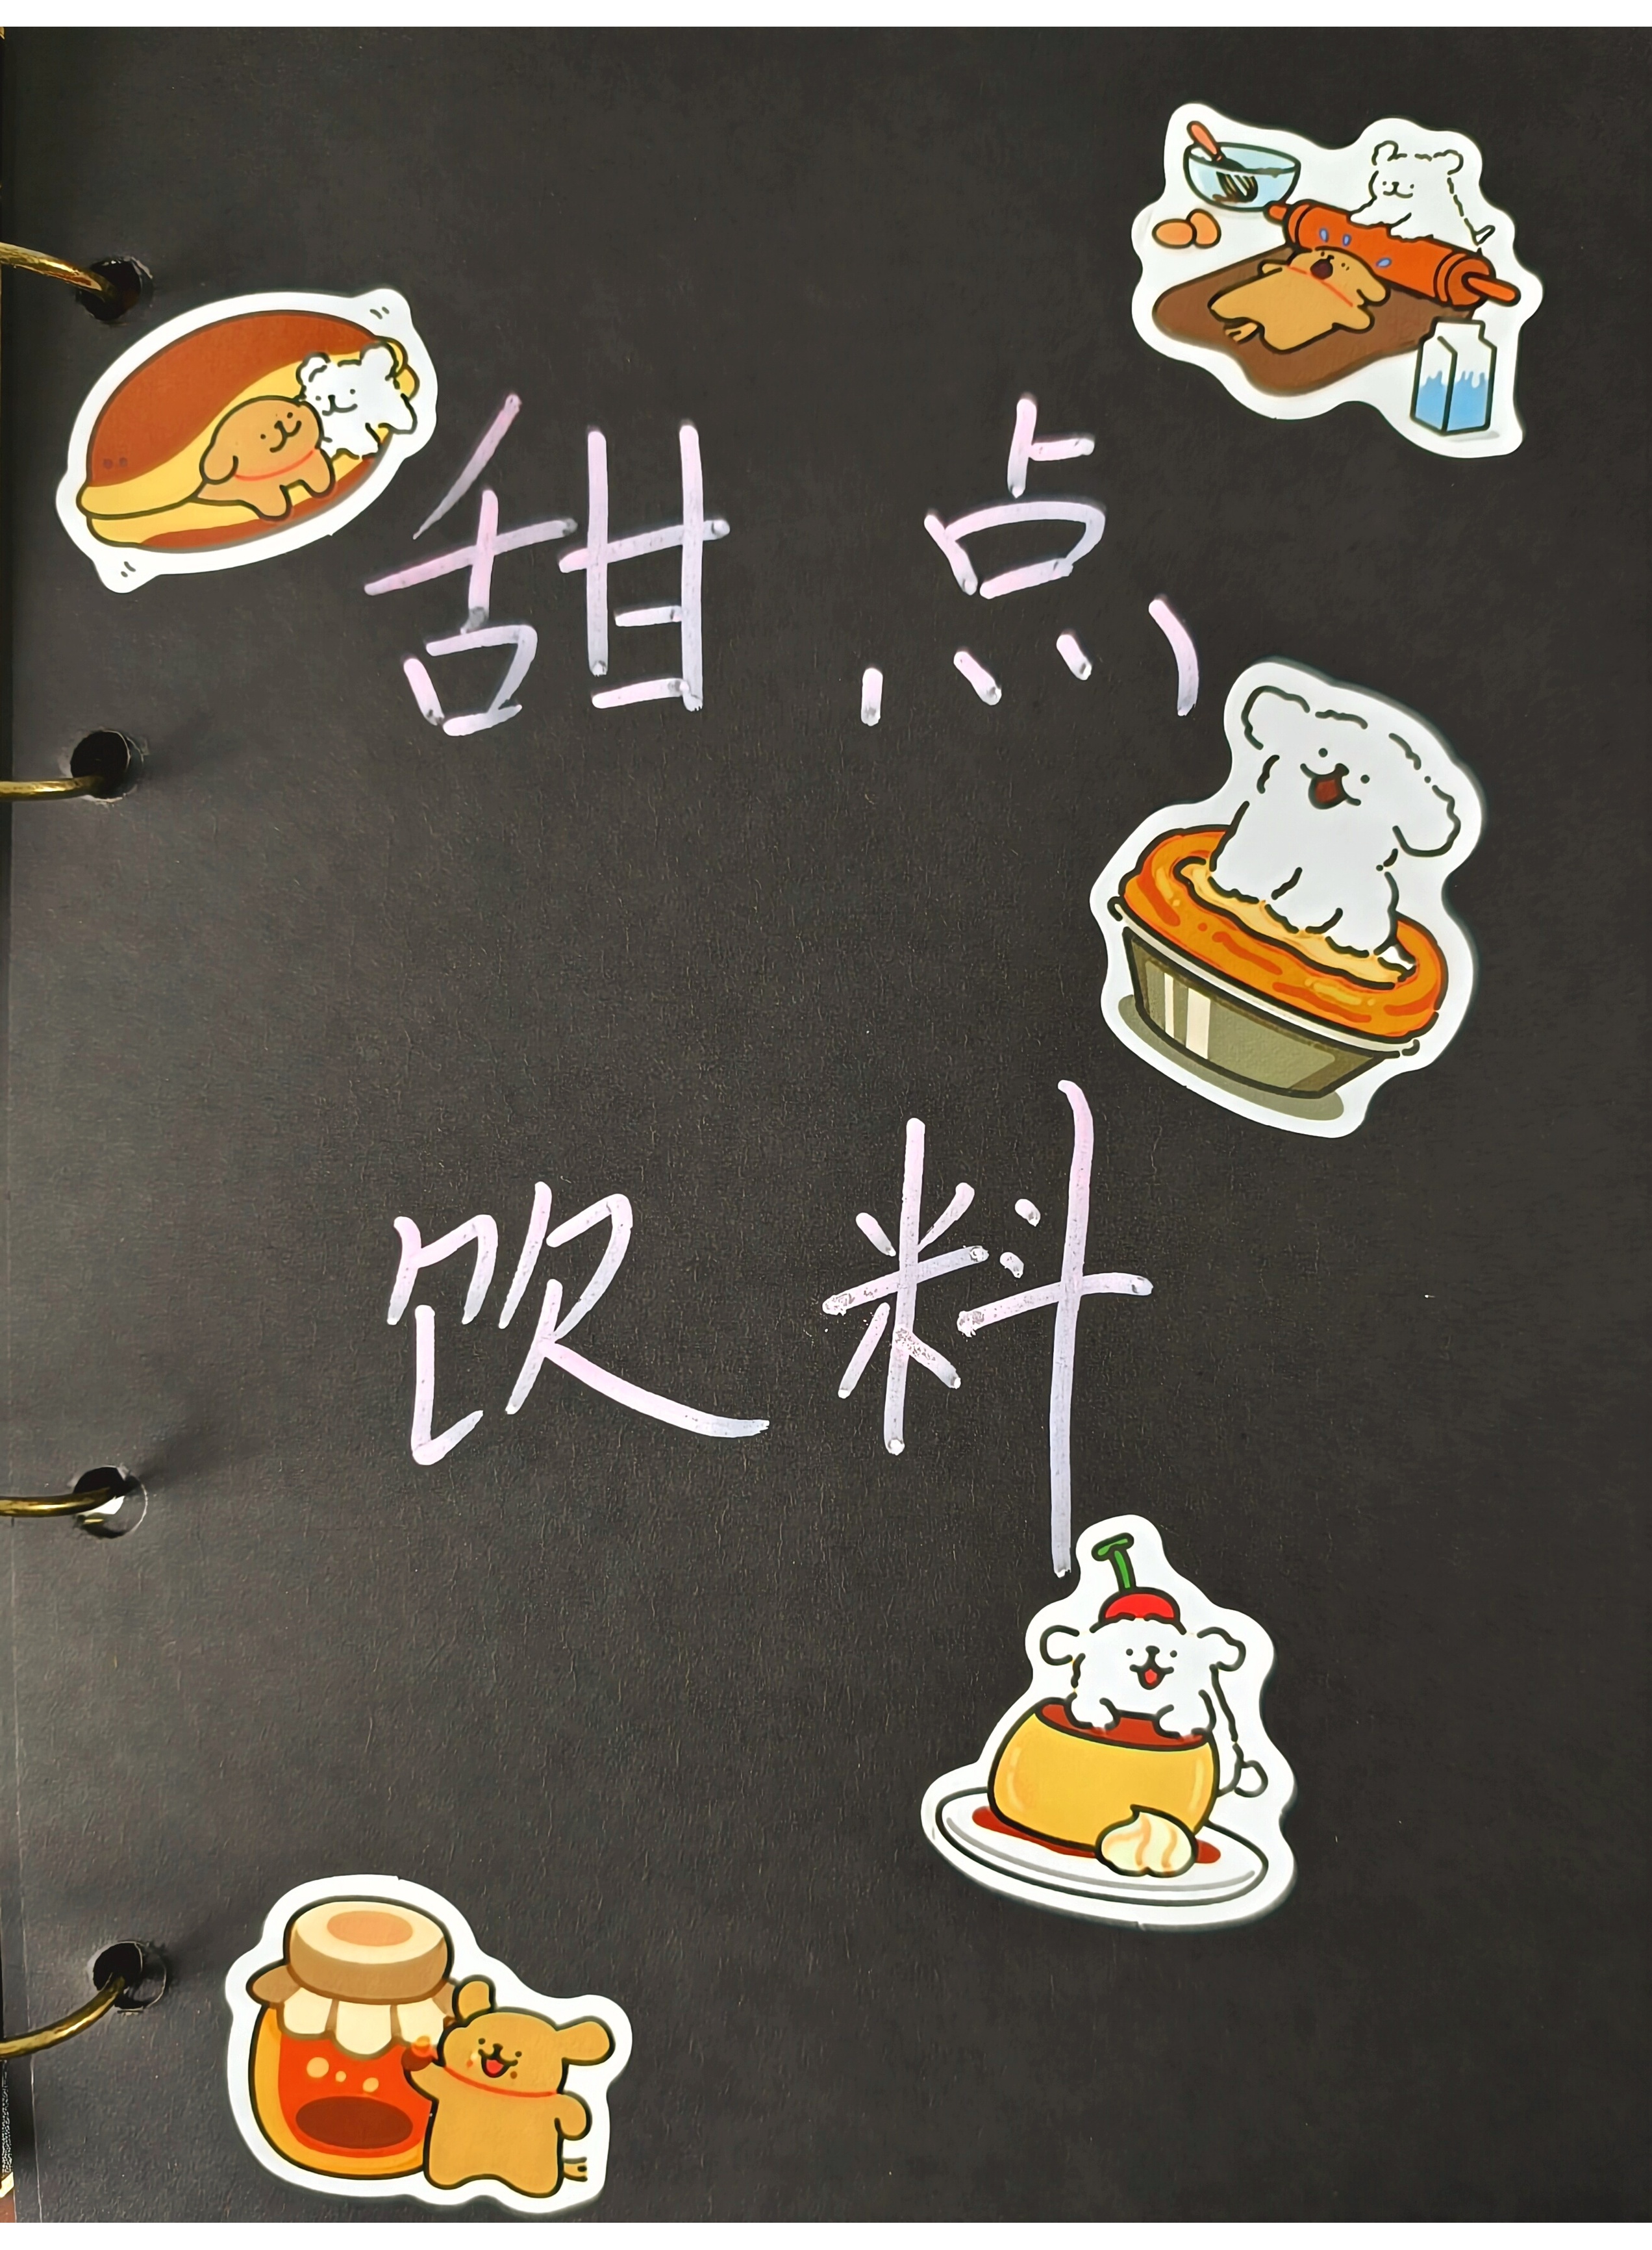 甜点
饮料